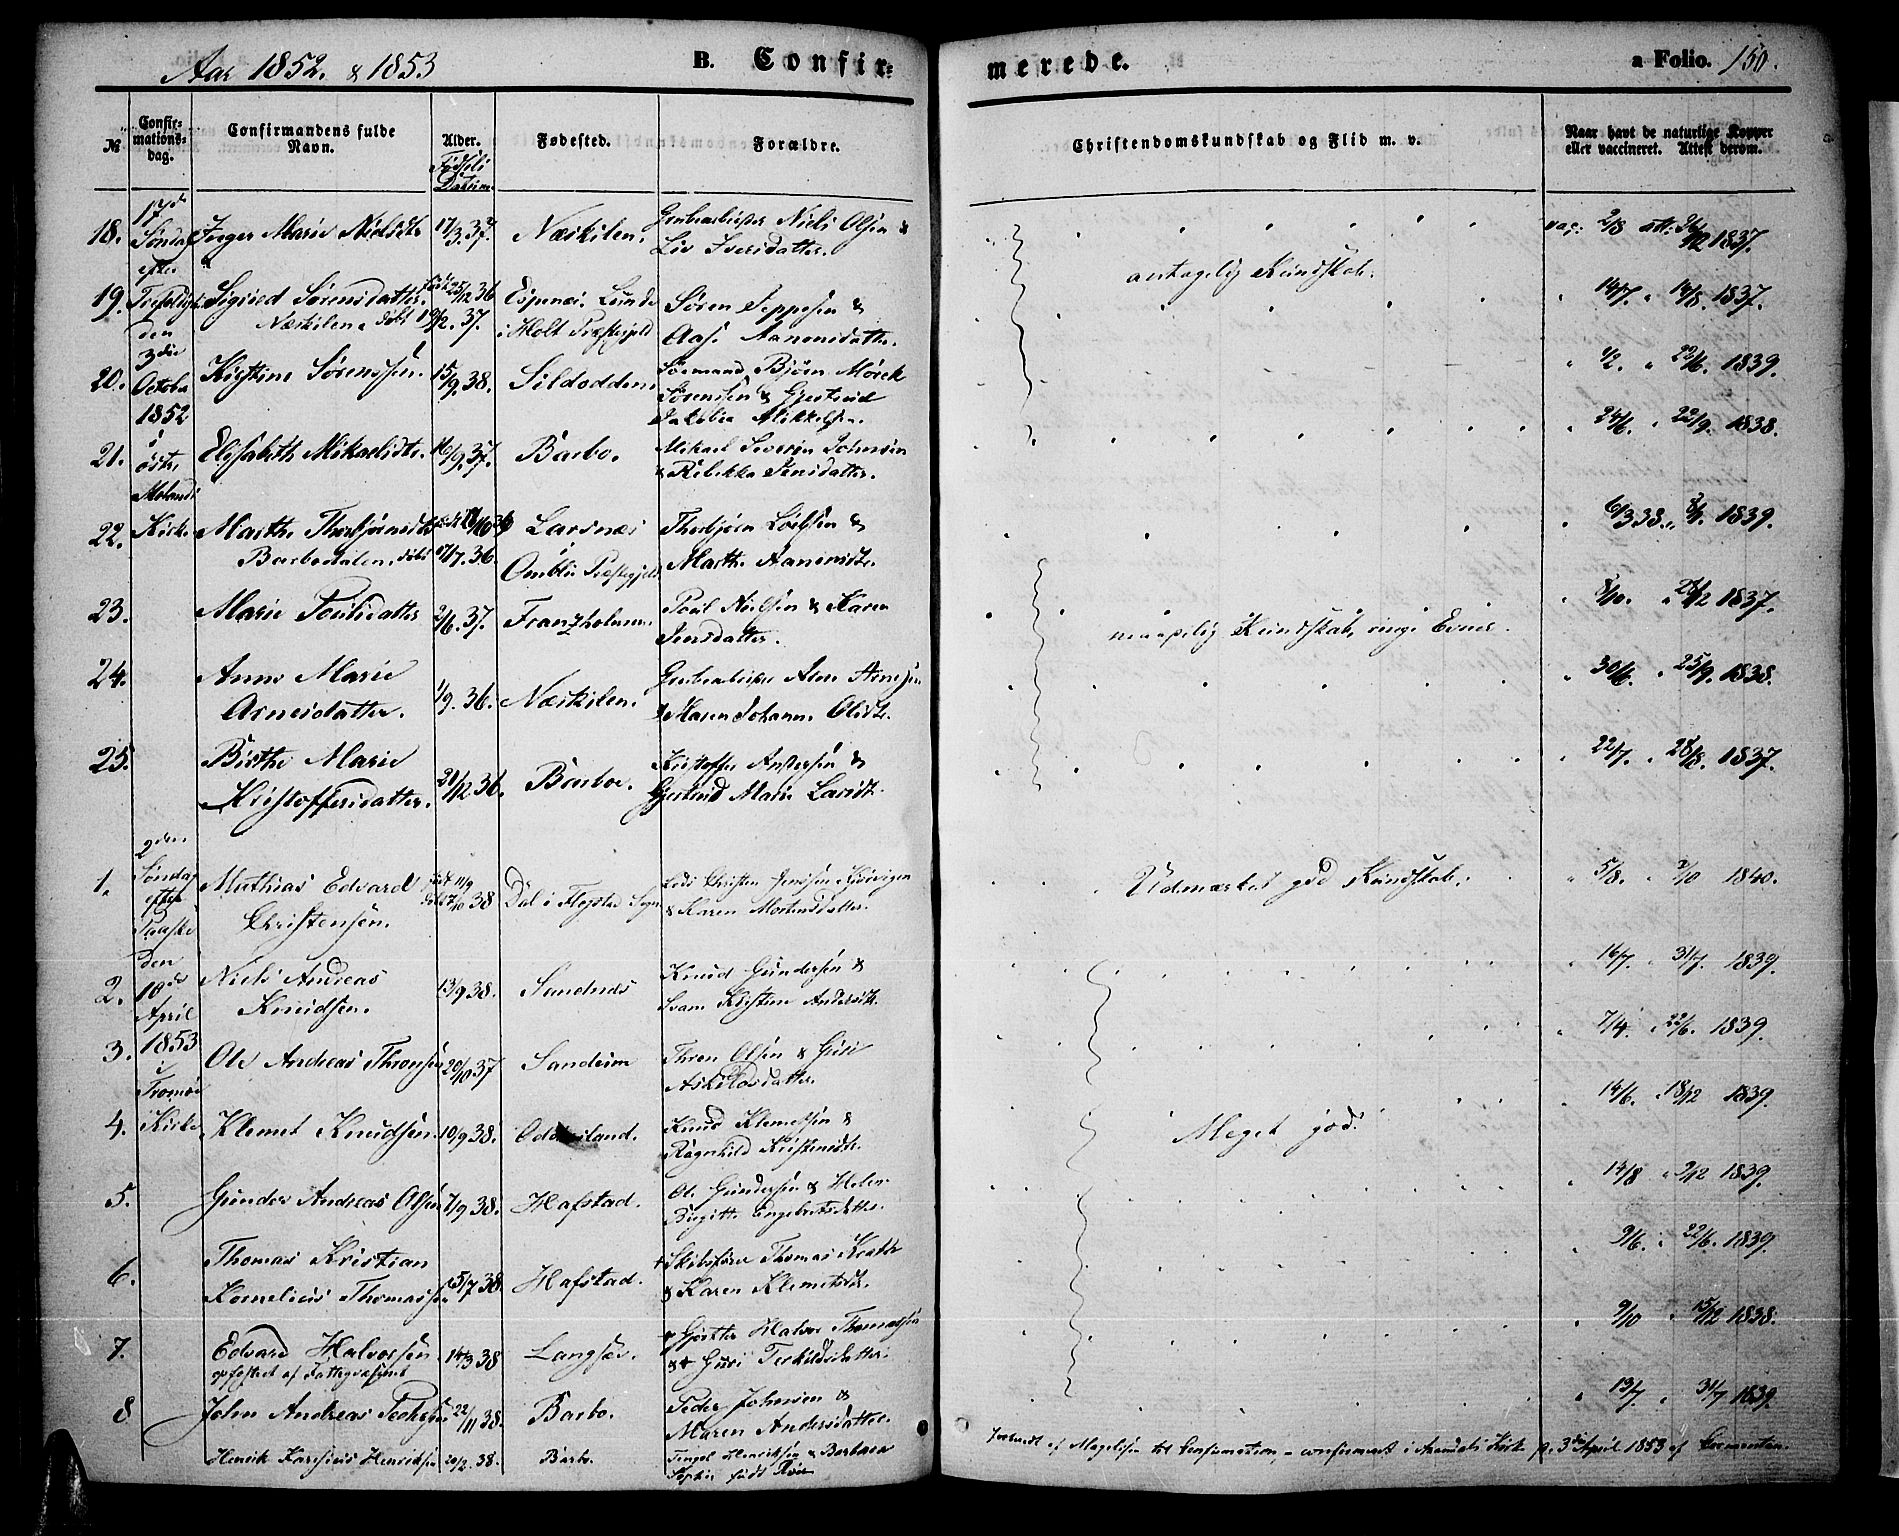 Aar 1852. & 1853 B. Confir-
merede. a Folio. 150.
№ Confir-mations-dag. Confirmandens fulde Navn. Alder. Fødsels Datum Fødested. Forældre.
Christendomskundskab og Flid m. v. Naar havt de naturlige Kopper eller vaccineret. Attest derom.
17de Søndag efter Trefoldigh. den 3die October 1852 i østre Molands Kirke
18. Inger Marie Nielsdtr 17/3.37. Næskilen. Grubearbeider Niels Olsen & Liv Iversdatter. vac: 2/8 att: 1837.
antagelig Kundskab.
19. Sigrid Sørensdatter. født 25/12 36 Lunde
Næskilen døbt 19/2.37. i Holt Præstegjeld Søren Jeppesen & Aase Aanonsdatter. 14/7. 14/8. 1837.
20. Kirstine Sørenssen. 15/9.38. Sildodden. Sømand Bjørn Mørck Sørensen & Gjertrud Jakobea Mikkelsen. 1/2. 22/6. 1839.
21. Elisabeth Mikaelsdtr. 16/9.37. Barbo. Mikael Severin Johnsen & Rebekka Jensdatter. 24/6. 22/9. 1838.
22. Marthe Thorbjørnsdtr Larsnæs Thorbjørn &
Barbodalen, døbt 17/7.36. Præstegjeld Marthe Aanonsdtr. 6/3 38. 1839.
23. Marie Poulsdatter 2/6.37. Franzholmen Poul Nielsen & Karen Jensdatter. 8/10. 1837.
maadelig Kundskab, ringe Evner.
24. Anne Marie Arnesdatter. 1/9.36. Næskilen. Grubearbeider Arnesen & Maren Johanne Olsdtr. 30/6. 25/9. 1838.
25. Birthe Marie Kristoffersdatter. 21/12.36. Barboe. Kristoffer Andersen & Gjertrud Marie Larsdtr. 22/7. 28/8. 1837.
2den Søndag efter Paaske den 10de April 1853 i Tromøe Kirke
1. Mathias Edvard Christensen. født 11/9 døbt 7/10 38 Dal i Fløjstad Sogn Lods Christen Jenssen & Karen Mortensdatter. 5/8. 2/10 1840.
Udmærket god Kundskab.
2. Niels Andreas Knudsen. 13/9 38. Sandnæs Knud Gundersen & Kirstine Andersdtr. 16/7. 31/7. 1839.
3. Ole Andreas Thronsen 20/10 37 Sandum Thron Olsen & Guri Askildsdatter. 7/4. 22/6. 1839.
4. Klemet Knudsen. 10/9 38. Klemetsen & Ragnhild Kristensdtr. 14/6. 18/12 1839.
Meget god.
5. Gunder Andreas Olsen 7/9 38. Hafstad. Ole Gundersen & Helen Birgitte Engebretsdatter. 14/8 2/12 1839.
6. Thomas Kristian Kornelius Thomassen 25/7 38. Hafstad. Skibsfører Thomas & Karen Klemetsdtr. 9/6. 22/6. 1839.
7. Edvard Halvorsen 14/3 38 Langsæ. Halvor Thomassen & Guri Terkildsdatter. 9/10 15/12 1838.
opfostret af Fattigvæsenet
8 John Andreas Pedersen 22/11 38. Barbo. Peder Johnsen & Maren Andersdatter. 13/7. 31/7 1839.
Henrik Karsinius Henriksen 20/2.38. Barbo. Henriksen & Barbara Sophie født af Magelssen til Confirmation, confirmert i Arendals Kirke p. 3die April 1853 af